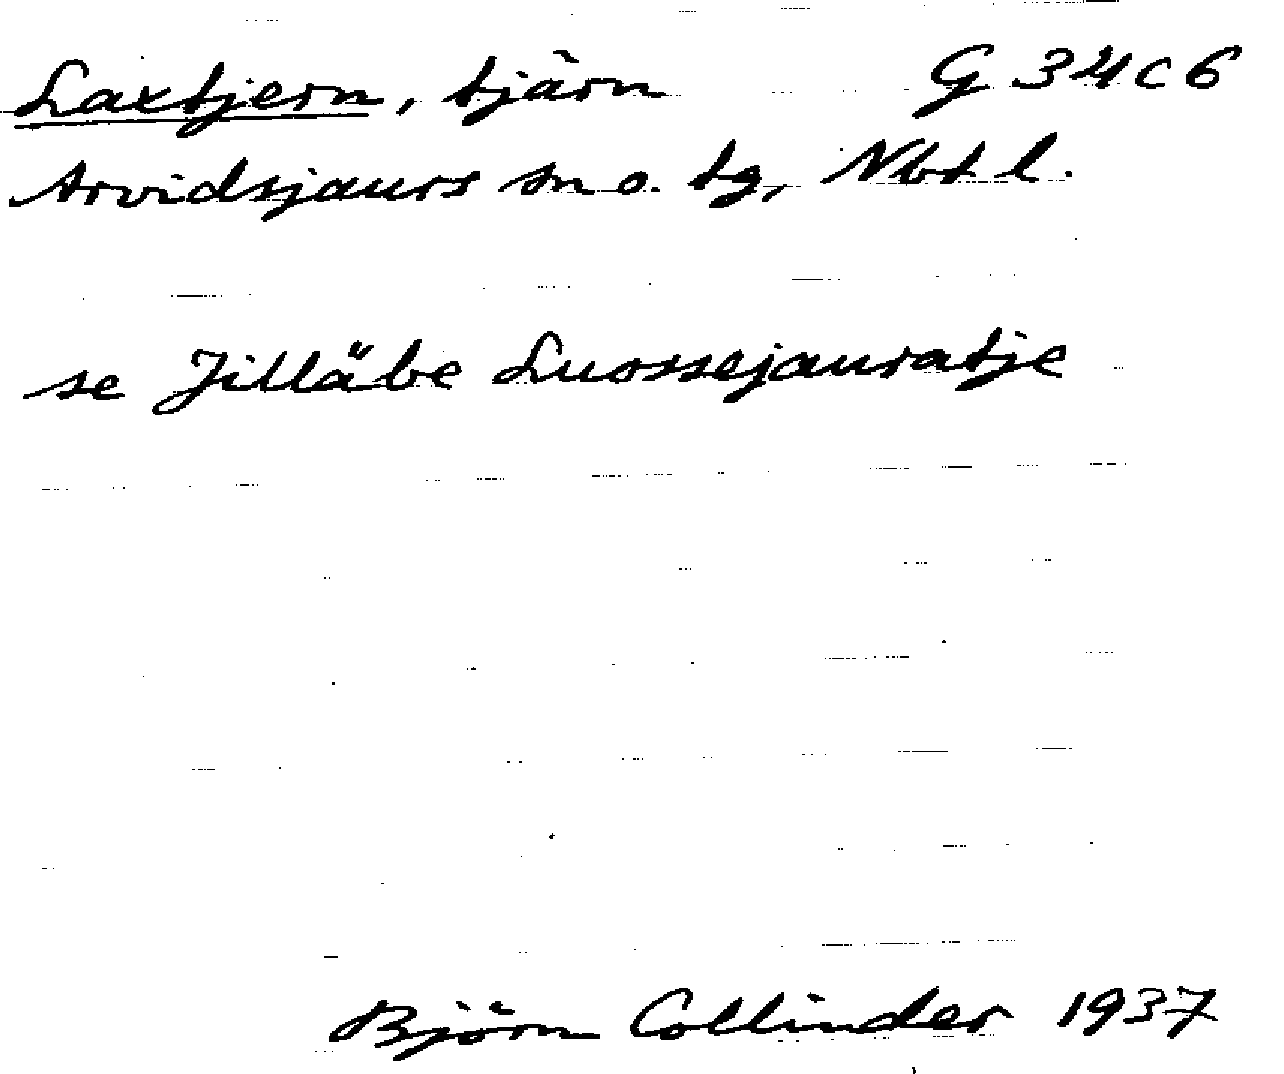 Laxtjern, tjärn G 34 c 6
Arvidsjaurs sn o. tg, Nbt l.
se Jilläbe Luossejauratje
Björn Collinder 1937